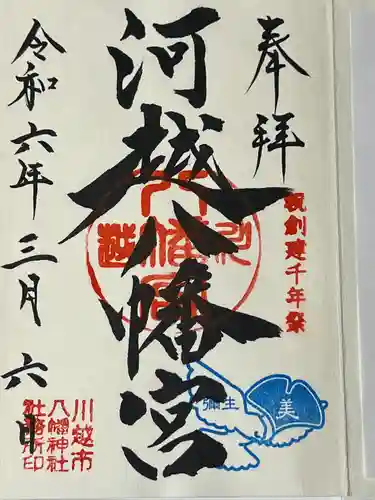 奉拝
祝創建千年祭
河越八幡宮
令和六年三月六日
川越市
八幡神社
社務所印
美
弥生